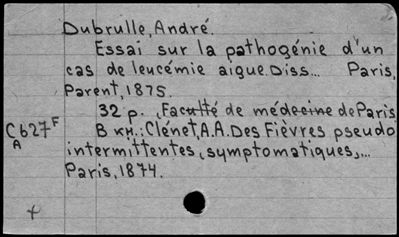 Dubrulle, André.
Essai sur la pathogénie d'un
cas de leucémie aigue. Diss... Paris,
Parent, 1875.
32 p. , Faculté de médecine de Paris
C627F В кн.: Clénet, A.A. Des Fièvres pseudo
A intermittentes, symptomatiques,...
Paris, 1874.